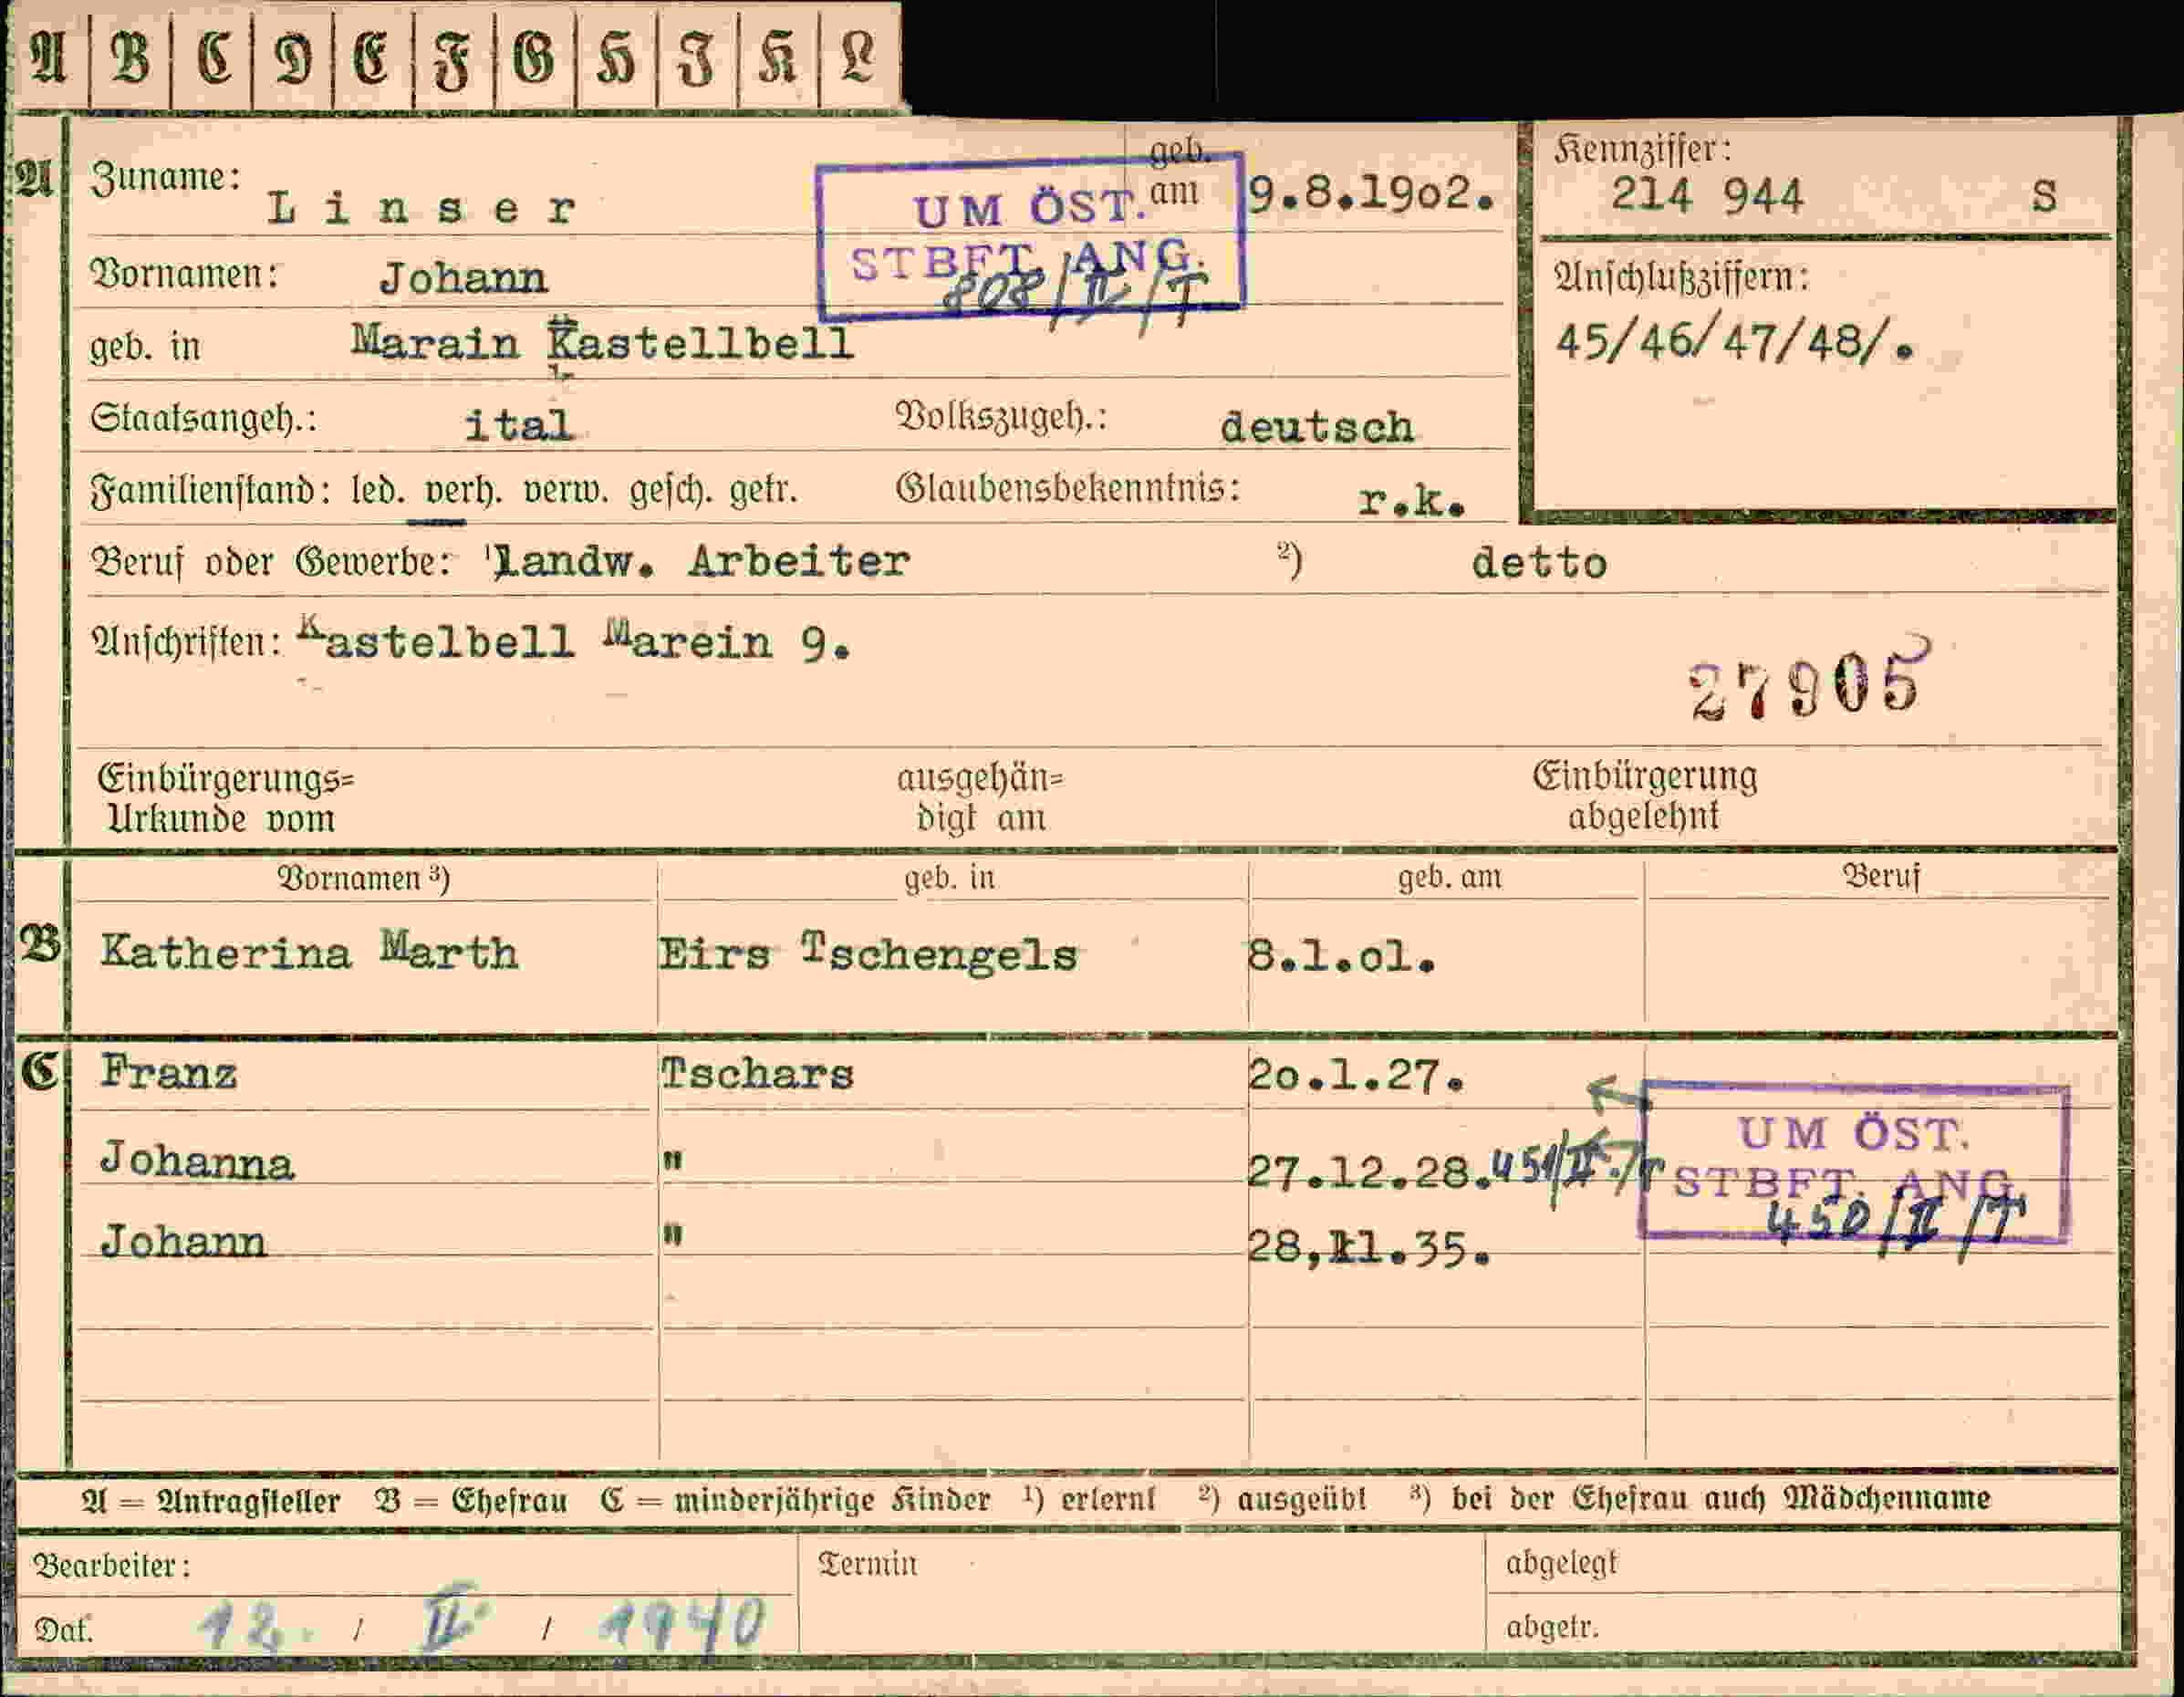 A B C D E F G H I K L
A Zuname: Linser geb. am 9.8.19o2. Kennziffer: 214 944 S
UM ÖST.
STBFT. ANG.
808/II/T
Vornamen: Johann Anschlußziffern:
geb. in Marain Kastellbell 45/46/47/48/.
Staatsangeh.: ital Volkszugeh.: deutsch
Familienstand: led. verh. verw. gesch. getr. Glaubensbekenntnis: r.k.
Beruf oder Gewerbe: 1) landw. Arbeiter 2) detto
Anschriften: Kastelbell Marein 9.
27905
Einbürgerungs= ausgehän= Einbürgerung
Urkunde vom digt am abgelehnt
Vornamen 3) geb. in geb. am Beruf
B Katherina Marth Eirs Tschengels 8.1.o1.
C Franz Tschars 2o.1.27.
Johanna " 27.12.28. 451/II./T
Johann " 28,11.35.
UM ÖST.
STBFT. ANG.
450/II/T
A = Antragsteller B = Ehefrau C = minderjährige Kinder 1) erlernt 2) ausgeübt 3) bei der Ehefrau auch Mädchenname
Bearbeiter: Termin abgelegt
Dat. 12. / II. / 1940 abgetr.